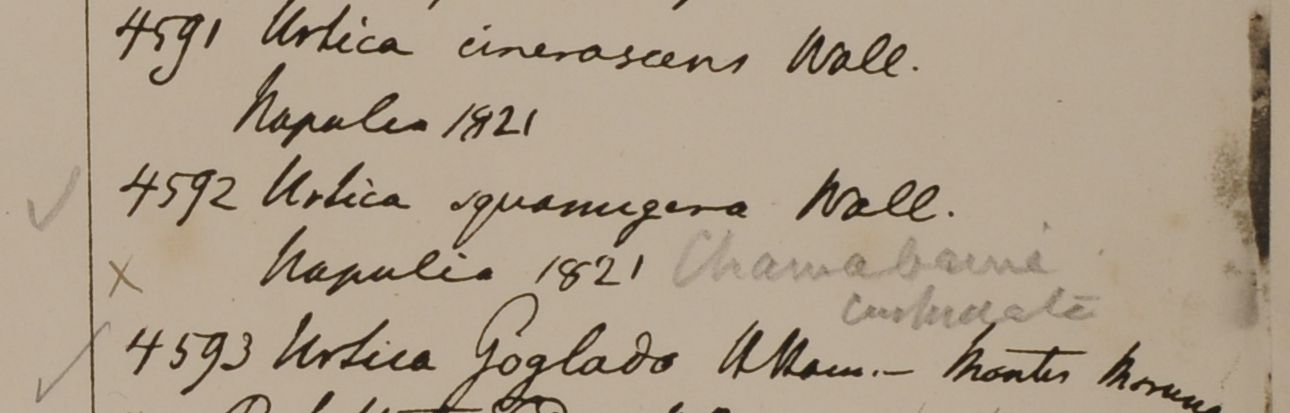 4591 Urtica cinerascens Wall.
Napalia 1821
4592 Urtica squamigera Wall.
Napalia 1821 Chamabaini
cuspidata
4593 Urtica Goglado HHam.– Montes